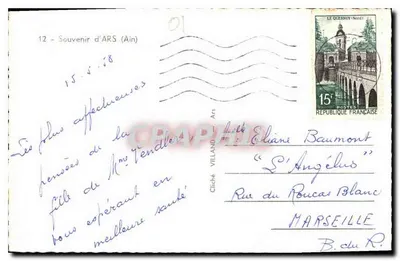 12 - Souvenir d'ARS (Ain)
15.5.58
Les plus affectueuses
pensées de la
fille de Mme Tendle
vous espérant en
meilleure santé
Cliché VILLAND Ars
LE QUESNOY (Nord)
15F
POSTES
REPUBLIQUE FRANÇAISE
Eliane Beaumont
"L'Angélus"
Rue du Roucas Blanc
MARSEILLE
B. du R.